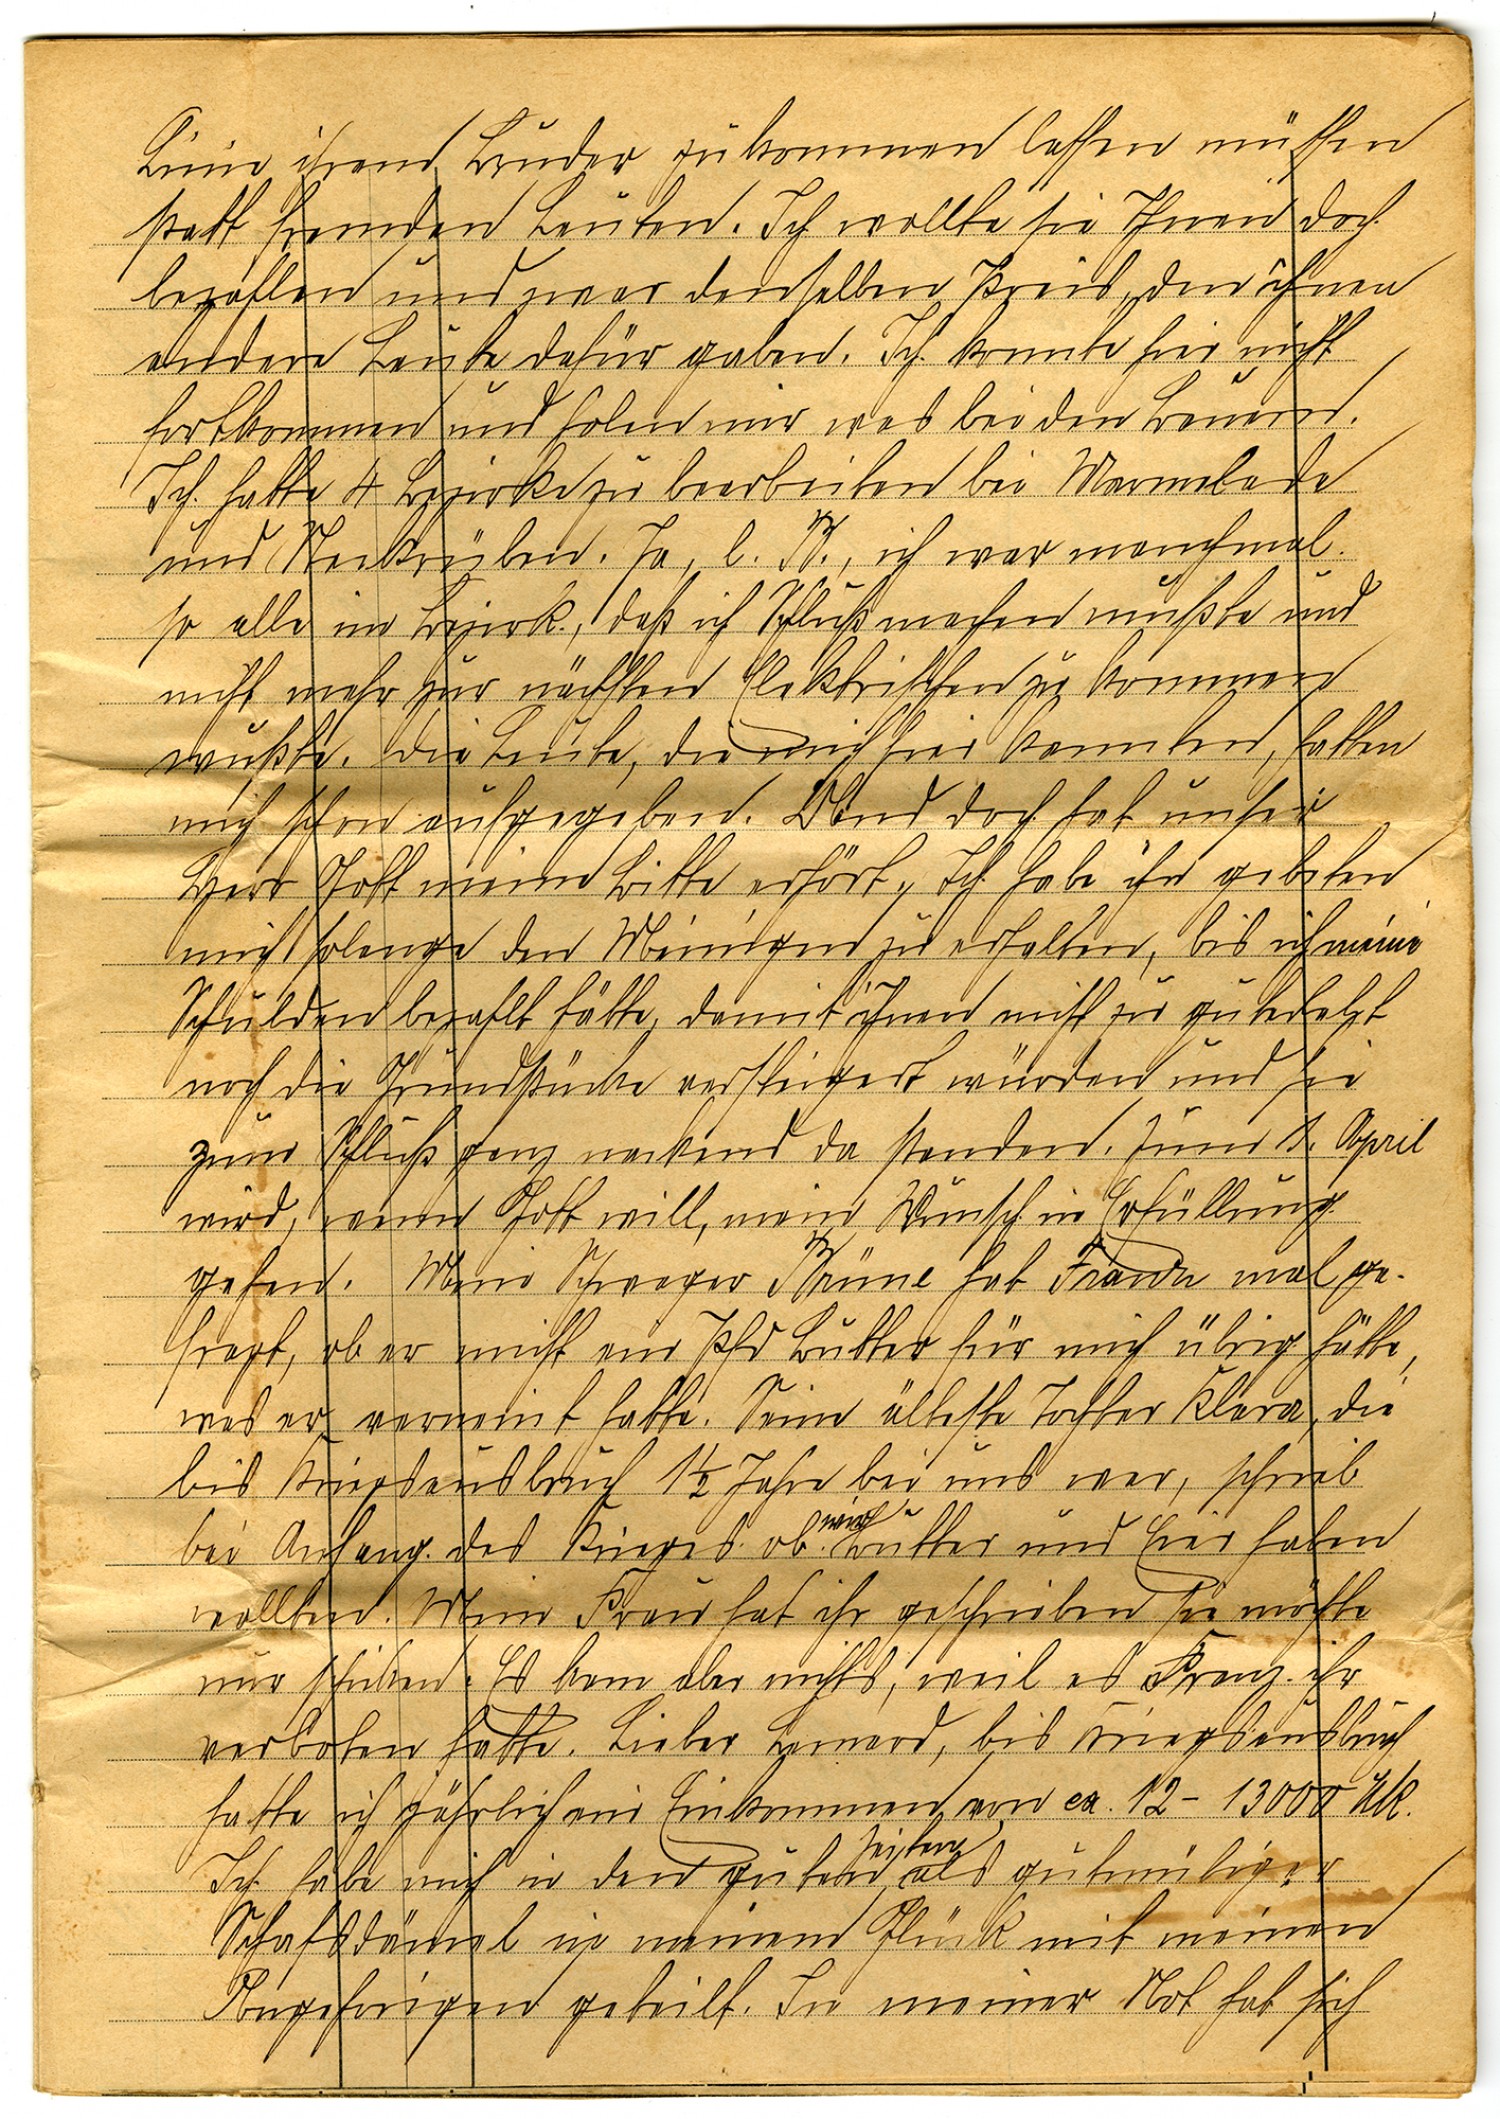 Leine ihrem Bruder zukommen lassen müssen
statt fremden Leuten. Ich wollte sie Ihnen doch
bezahlen und zwar denselben Preis, den ihnen
andere Leute dafür gaben. Ich konnte hier nicht
fortkommen und holen mir was bei den Bauern.
Ich hatte 4 Bezirke zu bearbeiten bei Marmelade
und Steckrüben. Ja, l. B., ich war manchmal
so alle im Bezirk, daß ich Schluß machen mußte und
nicht mehr zur nächsten Elektrischen zu kommen
wußte. Die Leute, die mich hier kannten, hatten
mich schon aufgegeben. Und doch hat unser
Herr Gott meine Bitte erhört, Ich habe ihn gebeten
mich solange den Meinigen zu erhalten, bis ich meine
Schulden bezahlt hätte, damit ihnen nicht zu guterletzt
noch die Grundstücke versteigert würden und sie
zum Schluß ganz nackend da standen. Zum 1. April
wird, wenn Gott will, mein Wunsch in Erfüllung
gehen. Mein Schwager Brüne hat Franz mal ge-
fragt, ob er nicht ein Pfd Butter für mich übrig hätte,
was er verneint hatte. Seine älteste Tochter Klara, die
bis Kriegsausbruch 1½ Jahre bei uns war, schrieb
bei Anfang des Krieges ob wir Butter und Eier haben
wollten. Meine Frau hat ihr geschrieben sie möchte
nur schicken. Es kam aber nichts, weil es Franz ihr
verboten hatte. Lieber Bernard, bis Kriegsausbruch
hatte ich jährlich ein Einkommen von ca. 12 - 13000 Mk.
Ich habe mich in den guten Zeiten als gutmütiger
Schafsdämel in meinem Glück mit meinen
Angehörigen geteilt. In meiner Not hat sich